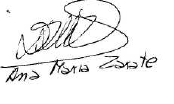 Ana Maria Zarate